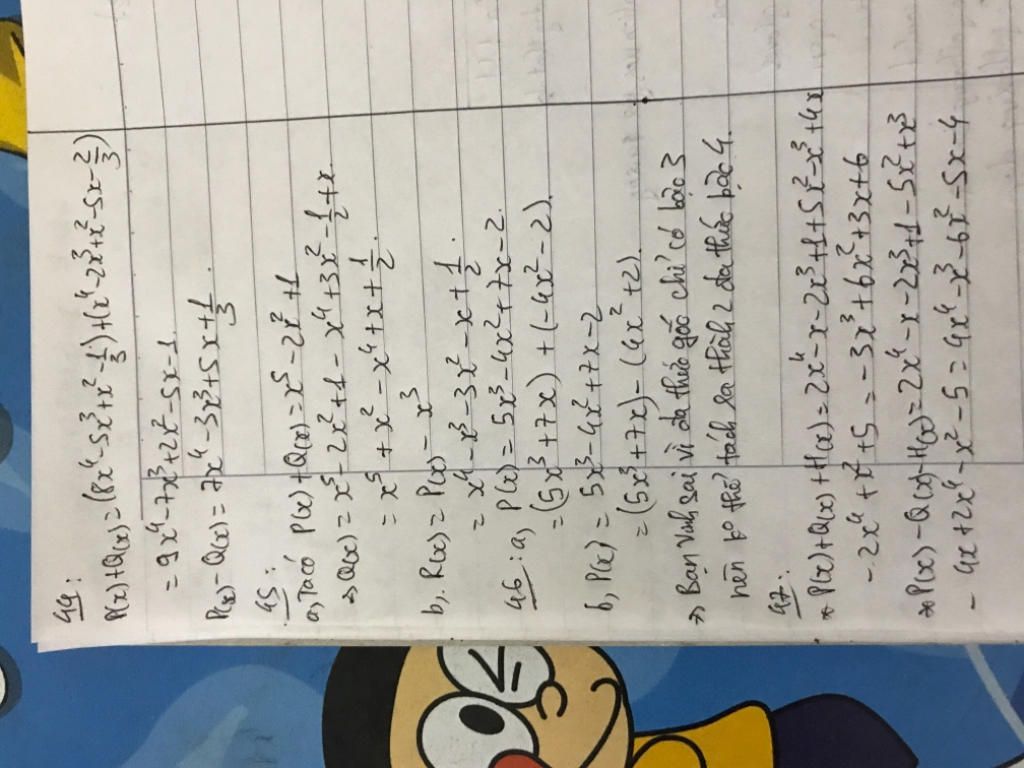 44:
P(x)+Q(x)=(8x⁴-5x³+x²-1/3)+(x⁴-2x³+x²-5x-2/3)
= 9x⁴-7x³+2x²-5x-1.
P(x)-Q(x)= 7x⁴-3x³+5x+1/3.
45:
a, Ta có P(x)+Q(x)=x⁵-2x²+1
⇒ Q(x)=x⁵-2x²+1-x⁴+3x²-1/2+x.
= x⁵+x²-x⁴+x+1/2.
b, R(x)=P(x)-x³
= x⁴-x³-3x²-x+1/2.
46: a, P(x)=5x³-4x²+7x-2.
=(5x³+7x)+(-4x²-2).
b, P(x)=5x³-4x²+7x-2
=(5x³+7x)-(4x²+2).
⇒ Bạn Vinh sai vì đa thức gốc chỉ có bậc 3
nên ko thể tách ra thành 2 đa thức bậc 4.
47:
* P(x)+Q(x)+H(x)=2x⁴-x-2x³+1+5x²-x³+4x
-2x⁴+x²+5=-3x³+6x²+3x+6
* P(x)-Q(x)-H(x)=2x⁴-x-2x³+1-5x²+x³
-4x+2x⁴-x²-5=4x⁴-x³-6x²-5x-4